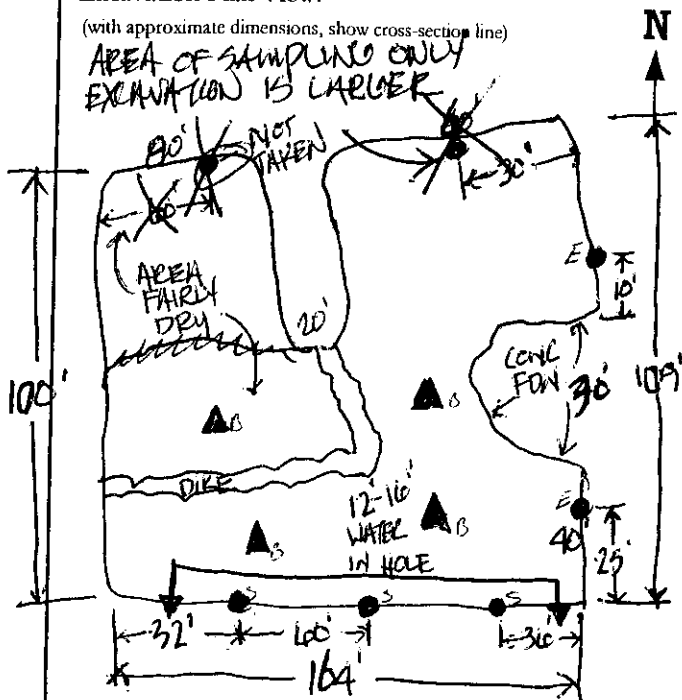 (with approximate dimensions, show cross-section line)
N
AREA OF SAMPLING ONLY
EXCAVATION IS LARGER
NOT
TAKEN
30'
E
10'
AREA
FAIRLY
DRY
20'
CONC
FDN
30'
100'
109'
B
B
DIKE
12-16'
WATER
IN HOLE
B
B
E
40'
25'
S
S
S
32'
36'
164'